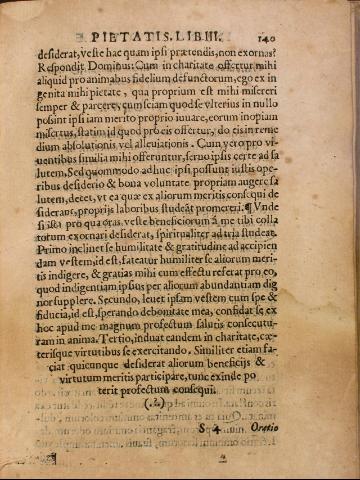 PIETATIS. LIB. III. 140
desiderat, veste hac quam ipsi prætendis, non exornas?
Respondit Dominus: Cum in charitate offertur mihi
aliquid pro animabus fidelium defunctorum, ego ex in
genita mihi pietate, qua proprium est mihi misereri
semper & parcere, cum sciam quod se vlterius in nullo
possint ipsi iam merito proprio iuuare, eorum inopiam
misertus, statim id quod pro eis offertur, do eis in reme
dium absolutionis vel alleuiationis. Cum vero pro vi
uentibus similia mihi offeruntur, seruo ipsis certe ad sa
lutem, Sed quommodo adhuc ipsi possunt iustis ope-
ribus desiderio & bona voluntate propriam augere sa
lutem, decet, vt ea quæ ex aliorum meritis consequi de
siderans, proprijs laboribus studeãt promereri. ¶ Vnde
si ista pro qua oras, veste beneficiorum à me tibi colla
torum exornari desiderat, spiritualiter ad tria studeat.
Primo inclinet se humilitate & gratitudine ad accipien
dam vestem, id est, fateatur humiliter se aliorum meri-
tis indigere, & gratias mihi cum effectu referat pro eo,
quod indigentiam ipsius per aliorum abundantiam dig
nor supplere. Secundo, leuet ipsam vestem cum spe &
fiducia, id est, sperando de bonitate mea, confidat se ex
hoc apud me magnum profectum salutis consecutu-
ram in anima. Tertio, induat eandem in charitate, cæ-
terisque virtutibus se exercitando. Similiter etiam fa-
ciat quicunque desiderat aliorum beneficijs &
virtutum meritis participare, tunc exinde po
terit profectum consequi.
(.?.)
S 4 Oratio